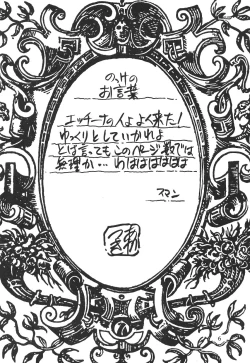 のっけの
お言葉
エッチーナの人よ よく来た!
ゆっくりとしていかれよ
とは言っても このページ数では
無理か… わはははははは
スマン
6